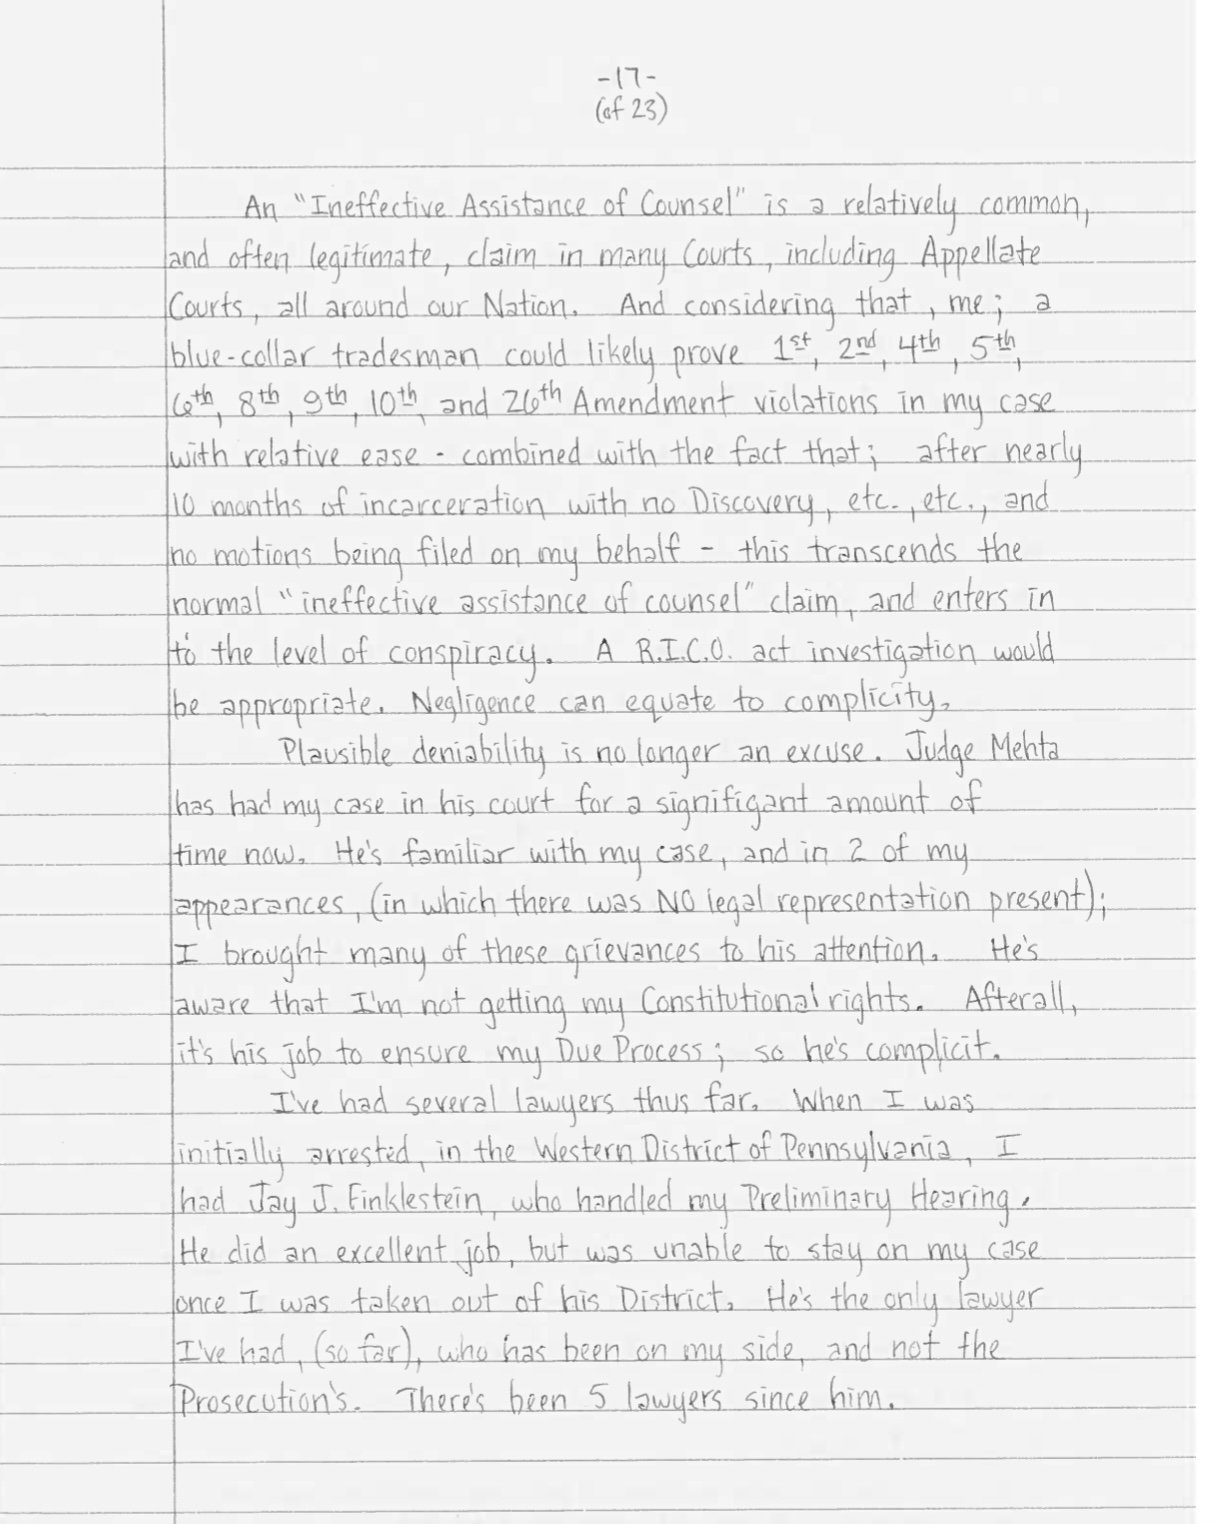 -17-
(of 23)
An "Ineffective Assistance of Counsel" is a relatively common,
and often legitimate, claim in many Courts, including Appellate
Courts, all around our Nation. And considering that, me; a
blue-collar tradesman could likely prove 1st, 2nd, 4th, 5th,
6th, 8th, 9th, 10th, and 26th Amendment violations in my case
with relative ease - combined with the fact that; after nearly
10 months of incarceration with no Discovery, etc., etc., and
no motions being filed on my behalf - this transcends the
normal "ineffective assistance of counsel" claim, and enters in
to the level of conspiracy. A R.I.C.O. act investigation would
be appropriate. Negligence can equate to complicity.
Plausible deniability is no longer an excuse. Judge Mehta
has had my case in his court for a signifigant amount of
time now. He's familiar with my case, and in 2 of my
appearances, (in which there was NO legal representation present);
I brought many of these grievances to his attention. He's
aware that I'm not getting my Constitutional rights. Afterall,
it's his job to ensure my Due Process; so he's complicit.
I've had several lawyers thus far. When I was
initially arrested, in the Western District of Pennsylvania, I
had Jay J. Finklestein, who handled my Preliminary Hearing.
He did an excellent job, but was unable to stay on my case
once I was taken out of his District. He's the only lawyer
I've had, (so far), who has been on my side, and not the
Prosecution's. There's been 5 lawyers since him.